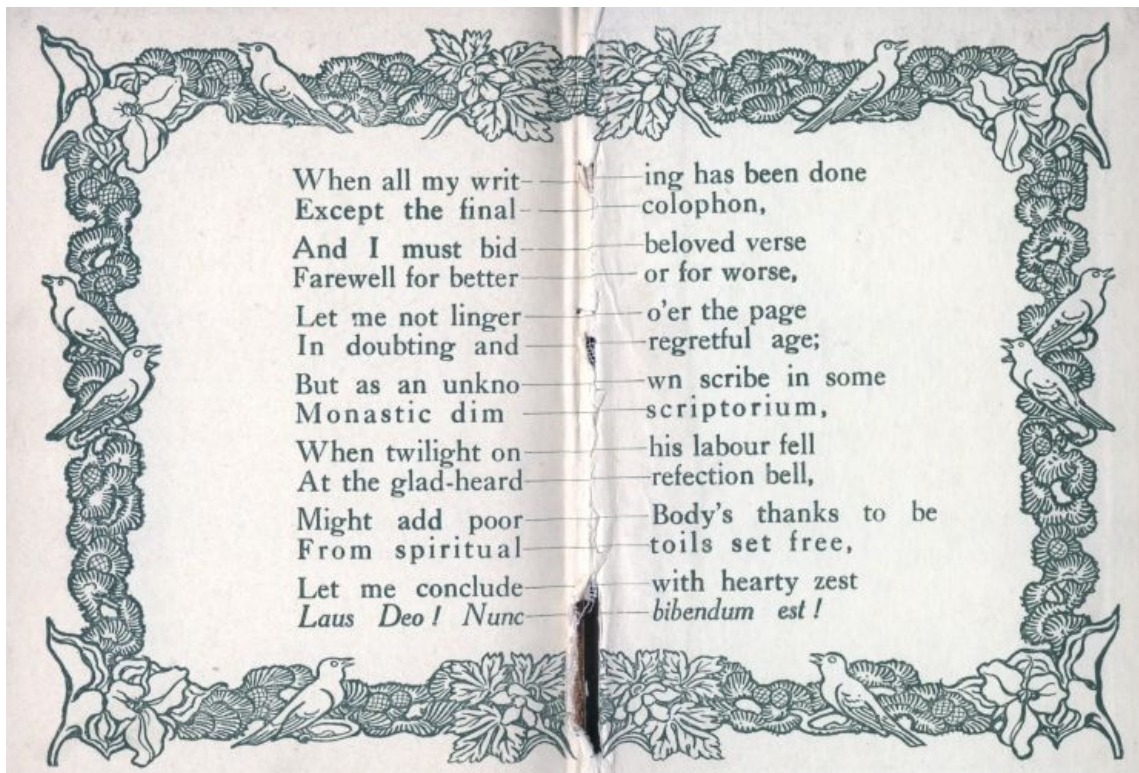 When all my writing has been done
Except the final colophon,
And I must bid beloved verse
Farewell for better or for worse,
Let me not linger o'er the page
In doubting and regretful age;
But as an unknown scribe in some
Monastic dim scriptorium,
When twilight on his labour fell
At the glad-heard refection bell,
Might add poor Body's thanks to be
From spiritual toils set free,
Let me conclude with hearty zest
Laus Deo! Nunc bibendum est!